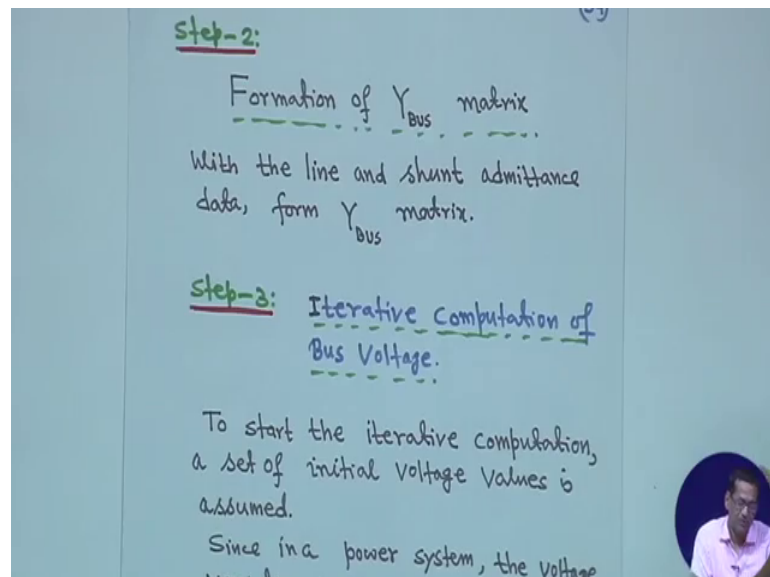 Step-2:
Formation of Y_BUS matrix
With the line and shunt admittance
data, form Y_BUS matrix.
Step-3: Iterative Computation of
Bus Voltage.
To start the iterative computation,
a set of initial voltage values is
assumed.
Since in a power system, the voltage